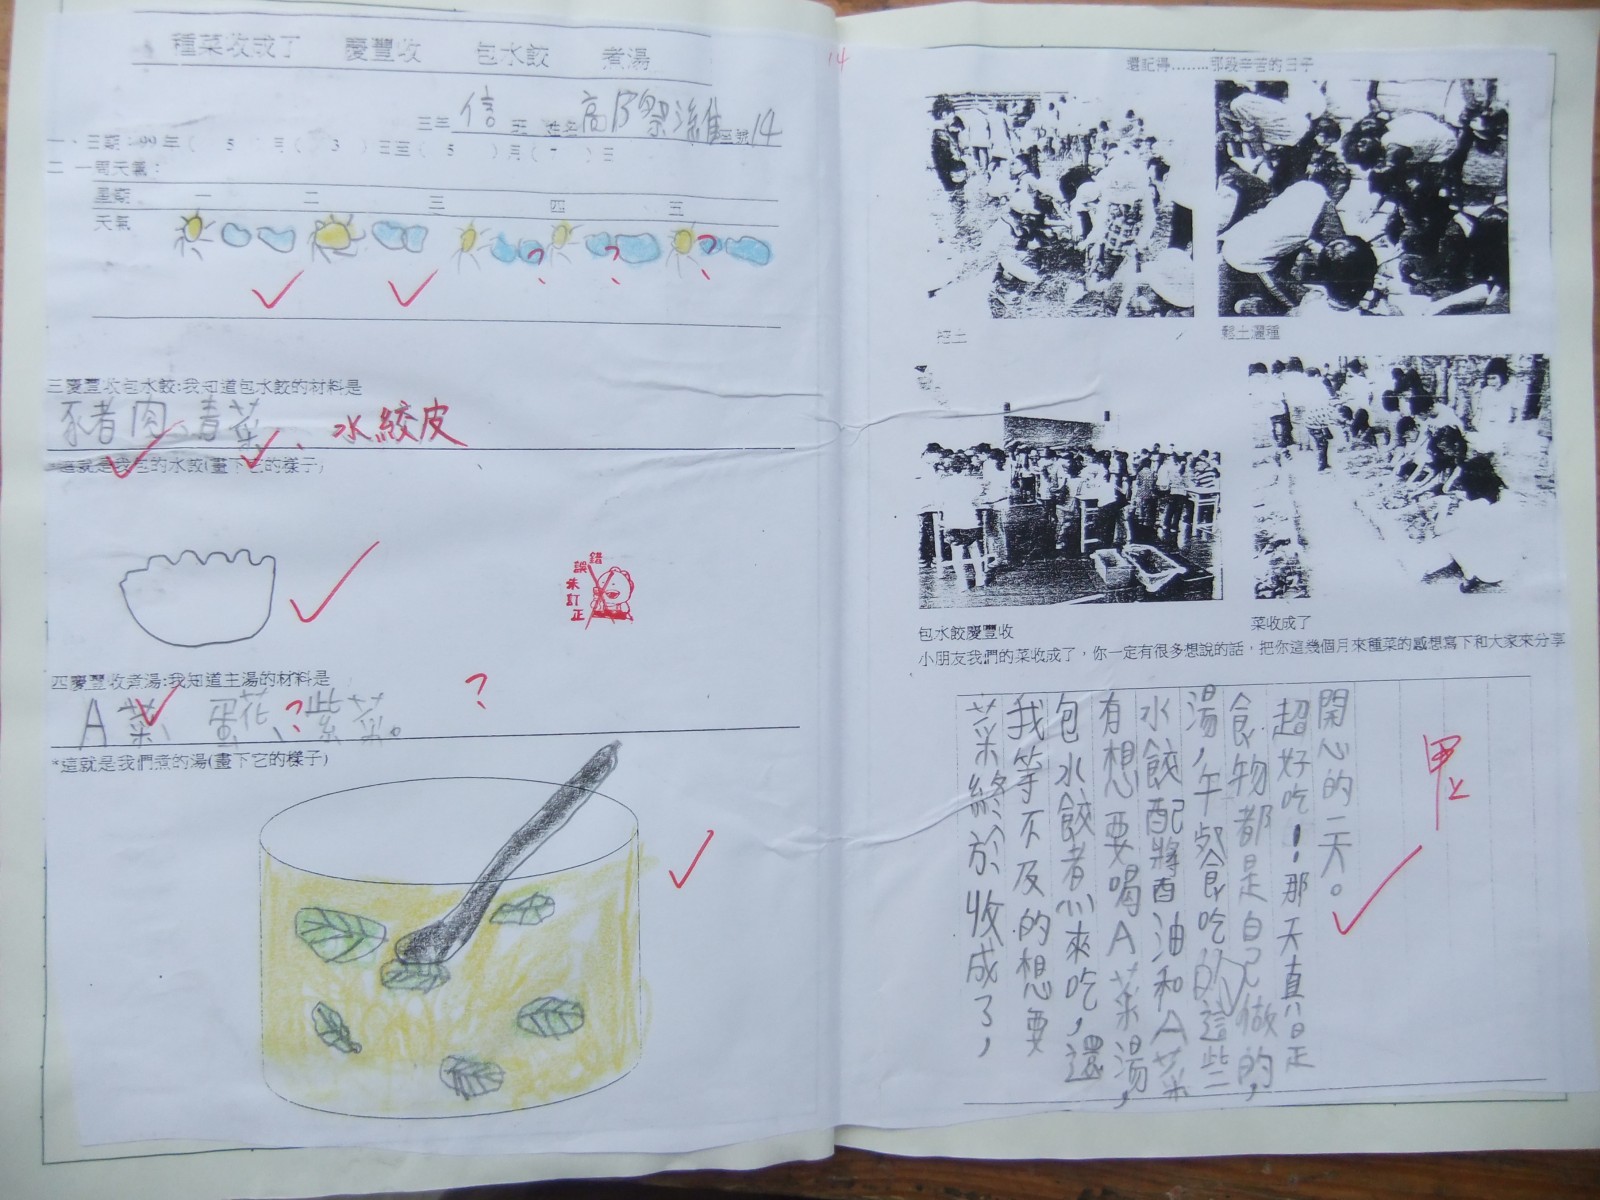 種菜收成了 慶豐收 包水餃 煮湯
三年 信 班 姓名 高 維 座號 14
一、日期:99年( 5 )月( 3 )日至( 5 )月( 7 )日
二 一周天氣:
星期 一 二 三 四 五
天氣
? ? ?
三慶豐收包水餃:我知道包水餃的材料是
豬肉、青菜、水絞皮
*這就是我包的水餃(畫下它的樣子)
錯誤未訂正
四慶豐收煮湯:我知道主湯的材料是
A菜、蛋花、?紫菜。 ?
*這就是我們煮的湯(畫下它的樣子)
14
還記得........那段辛苦的日子
挖土
鬆土灑種
包水餃慶豐收
菜收成了
小朋友我們的菜收成了,你一定有很多想說的話,把你這幾個月來種菜的感想寫下和大家來分享
菜終於收成了,
我等不及的想要
包水餃煮來吃,還
有想要喝A菜湯,
水餃配將油和A菜
湯,午餐吃的這些
食物都是自己做的,
超好吃!那天真是
開心的一天。
甲上